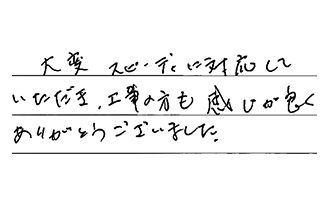 大変 スピーディに対応して
いただき、工事の方も 感じが良く
ありがとうございました。